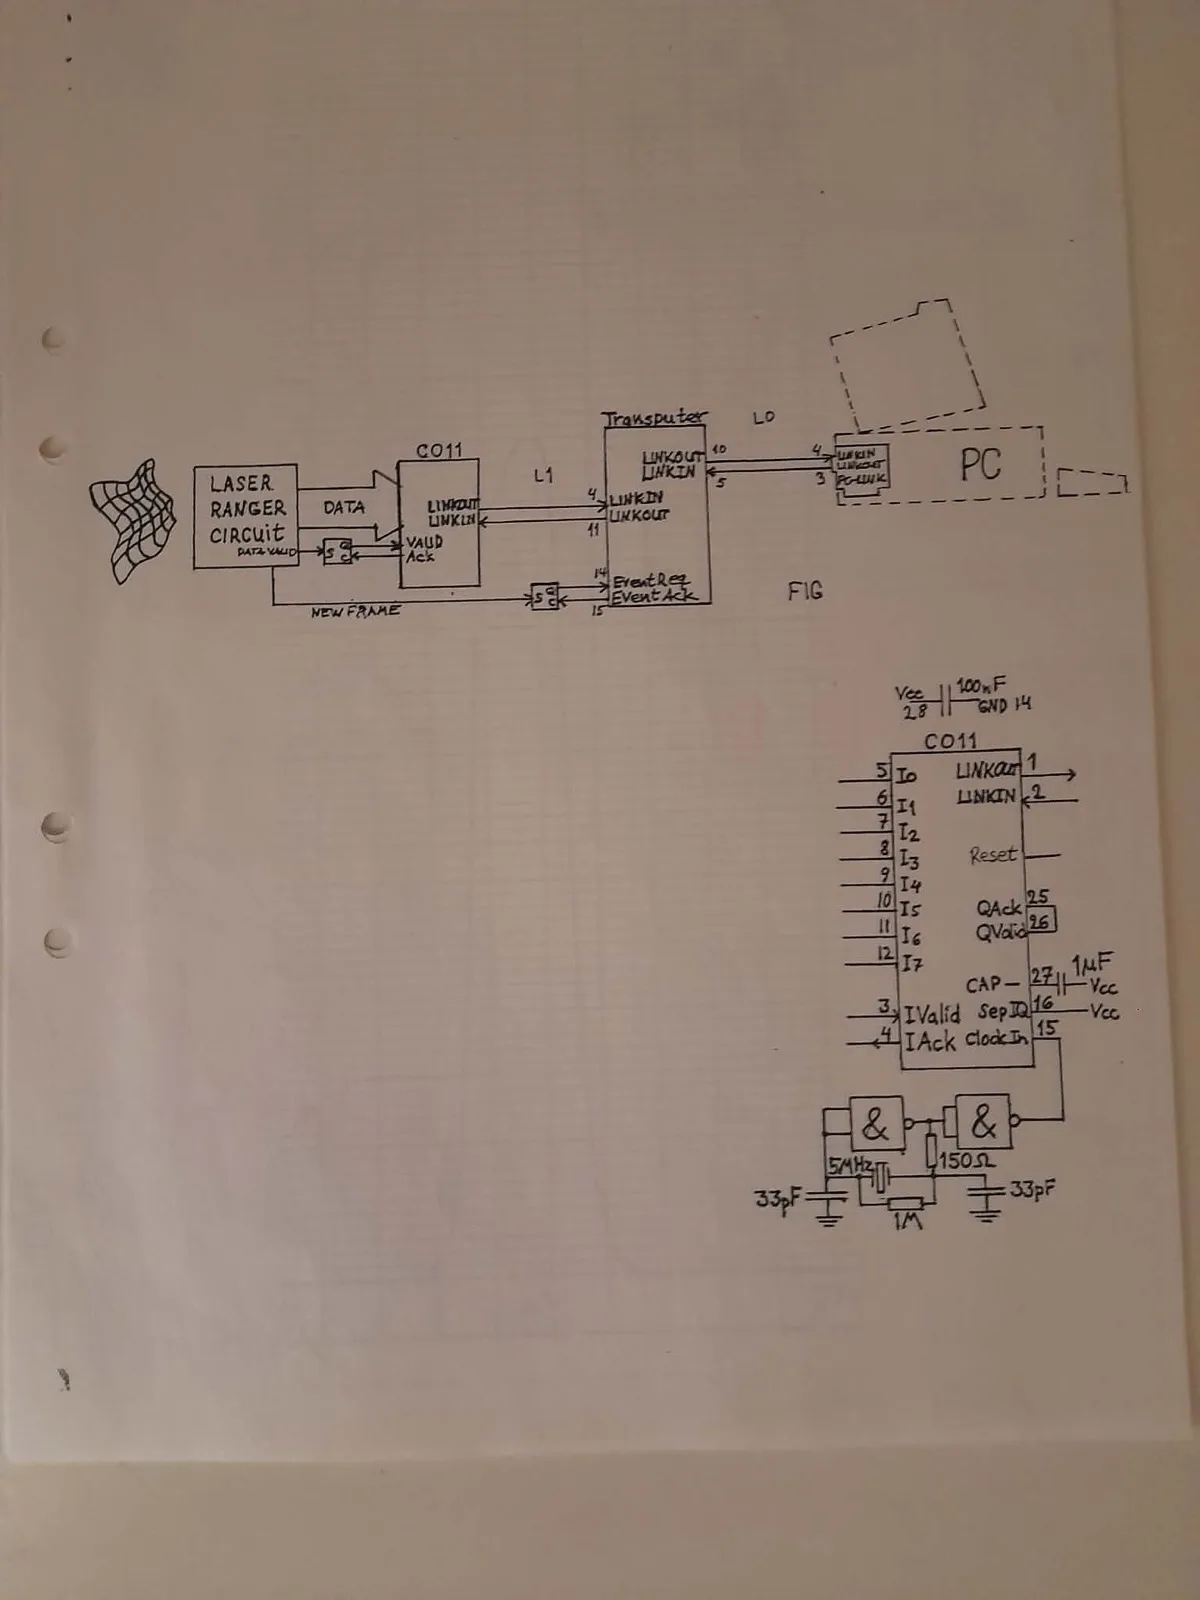 Transputer
L0
CO11
L1
LINKOUT 10
LINKIN 5
4 LINKIN
3 LINKOUT
PC-LINK
PC
LASER
RANGER
CIRCUIT
DATA VALID
DATA
S Q
C
LINKOUT
LINKIN
VALID
Ack
4 LINKIN
11 LINKOUT
NEW FRAME
S Q
C
14 EventReq
15 EventAck
FIG
Vcc 100nF
28 GND 14
CO11
5 I0 LINKOUT 1
6 I1 LINKIN 2
7 I2
8 I3 Reset
9 I4
10 I5 QAck 25
11 I6 QValid 26
12 I7
CAP 27 1µF Vcc
3 IValid SepIQ 16 Vcc
4 IAck ClockIn 15
& &
5MHz 150Ω
33pF 33pF
1M